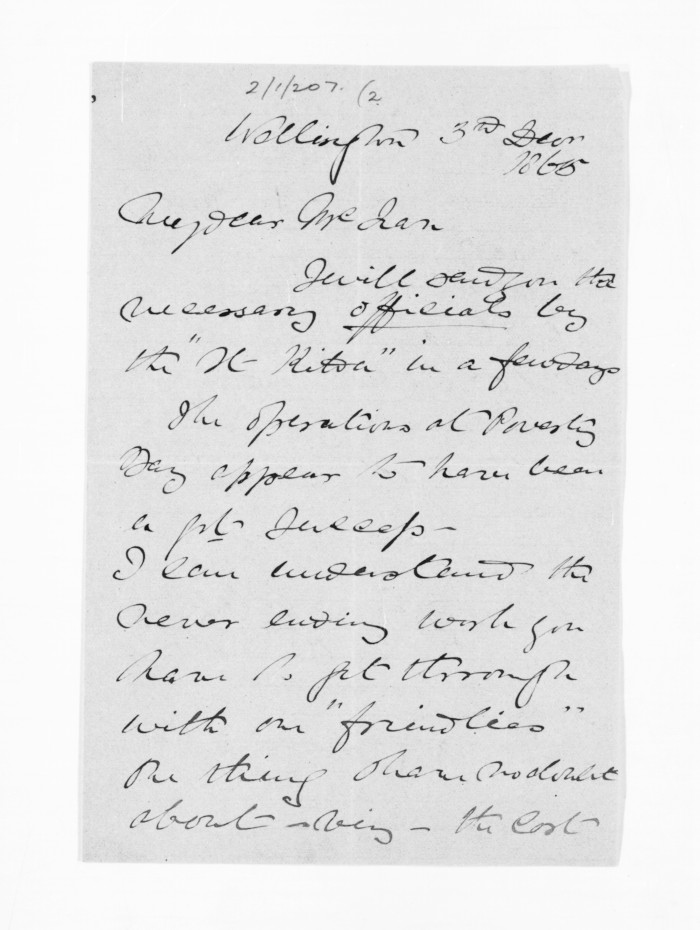 2/1/207. (2
Wellington 3rd Decr
1865
My dear McLean
I will send you the
necessary officials by
the "St Kilda" in a few days
The operations at Poverty
Bay appear to have been
a gt success -
I can understand the
never ending work you
have to get through
with our "friendlies"
One thing I have no doubt
about - viz - the Cost